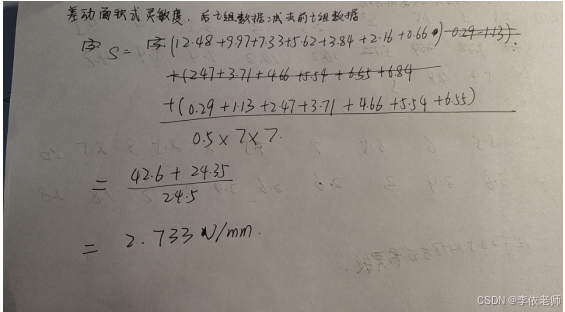 差动面积式灵敏度. 后七组数据减去前七组数据
S = (12.48 + 9.97 + 7.33 + 5.62 + 3.84 + 2.16 + 0.66) - 0.29 - 1.13)
+ (2.47 + 3.71 + 4.66 + 5.54 + 6.55 + 6.84
+ (0.29 + 1.13 + 2.47 + 3.71 + 4.66 + 5.54 + 6.55)
0.5 × 7 × 7.
= 42.6 + 24.35
24.5
= 2.733 V/mm.
CSDN @李依老师